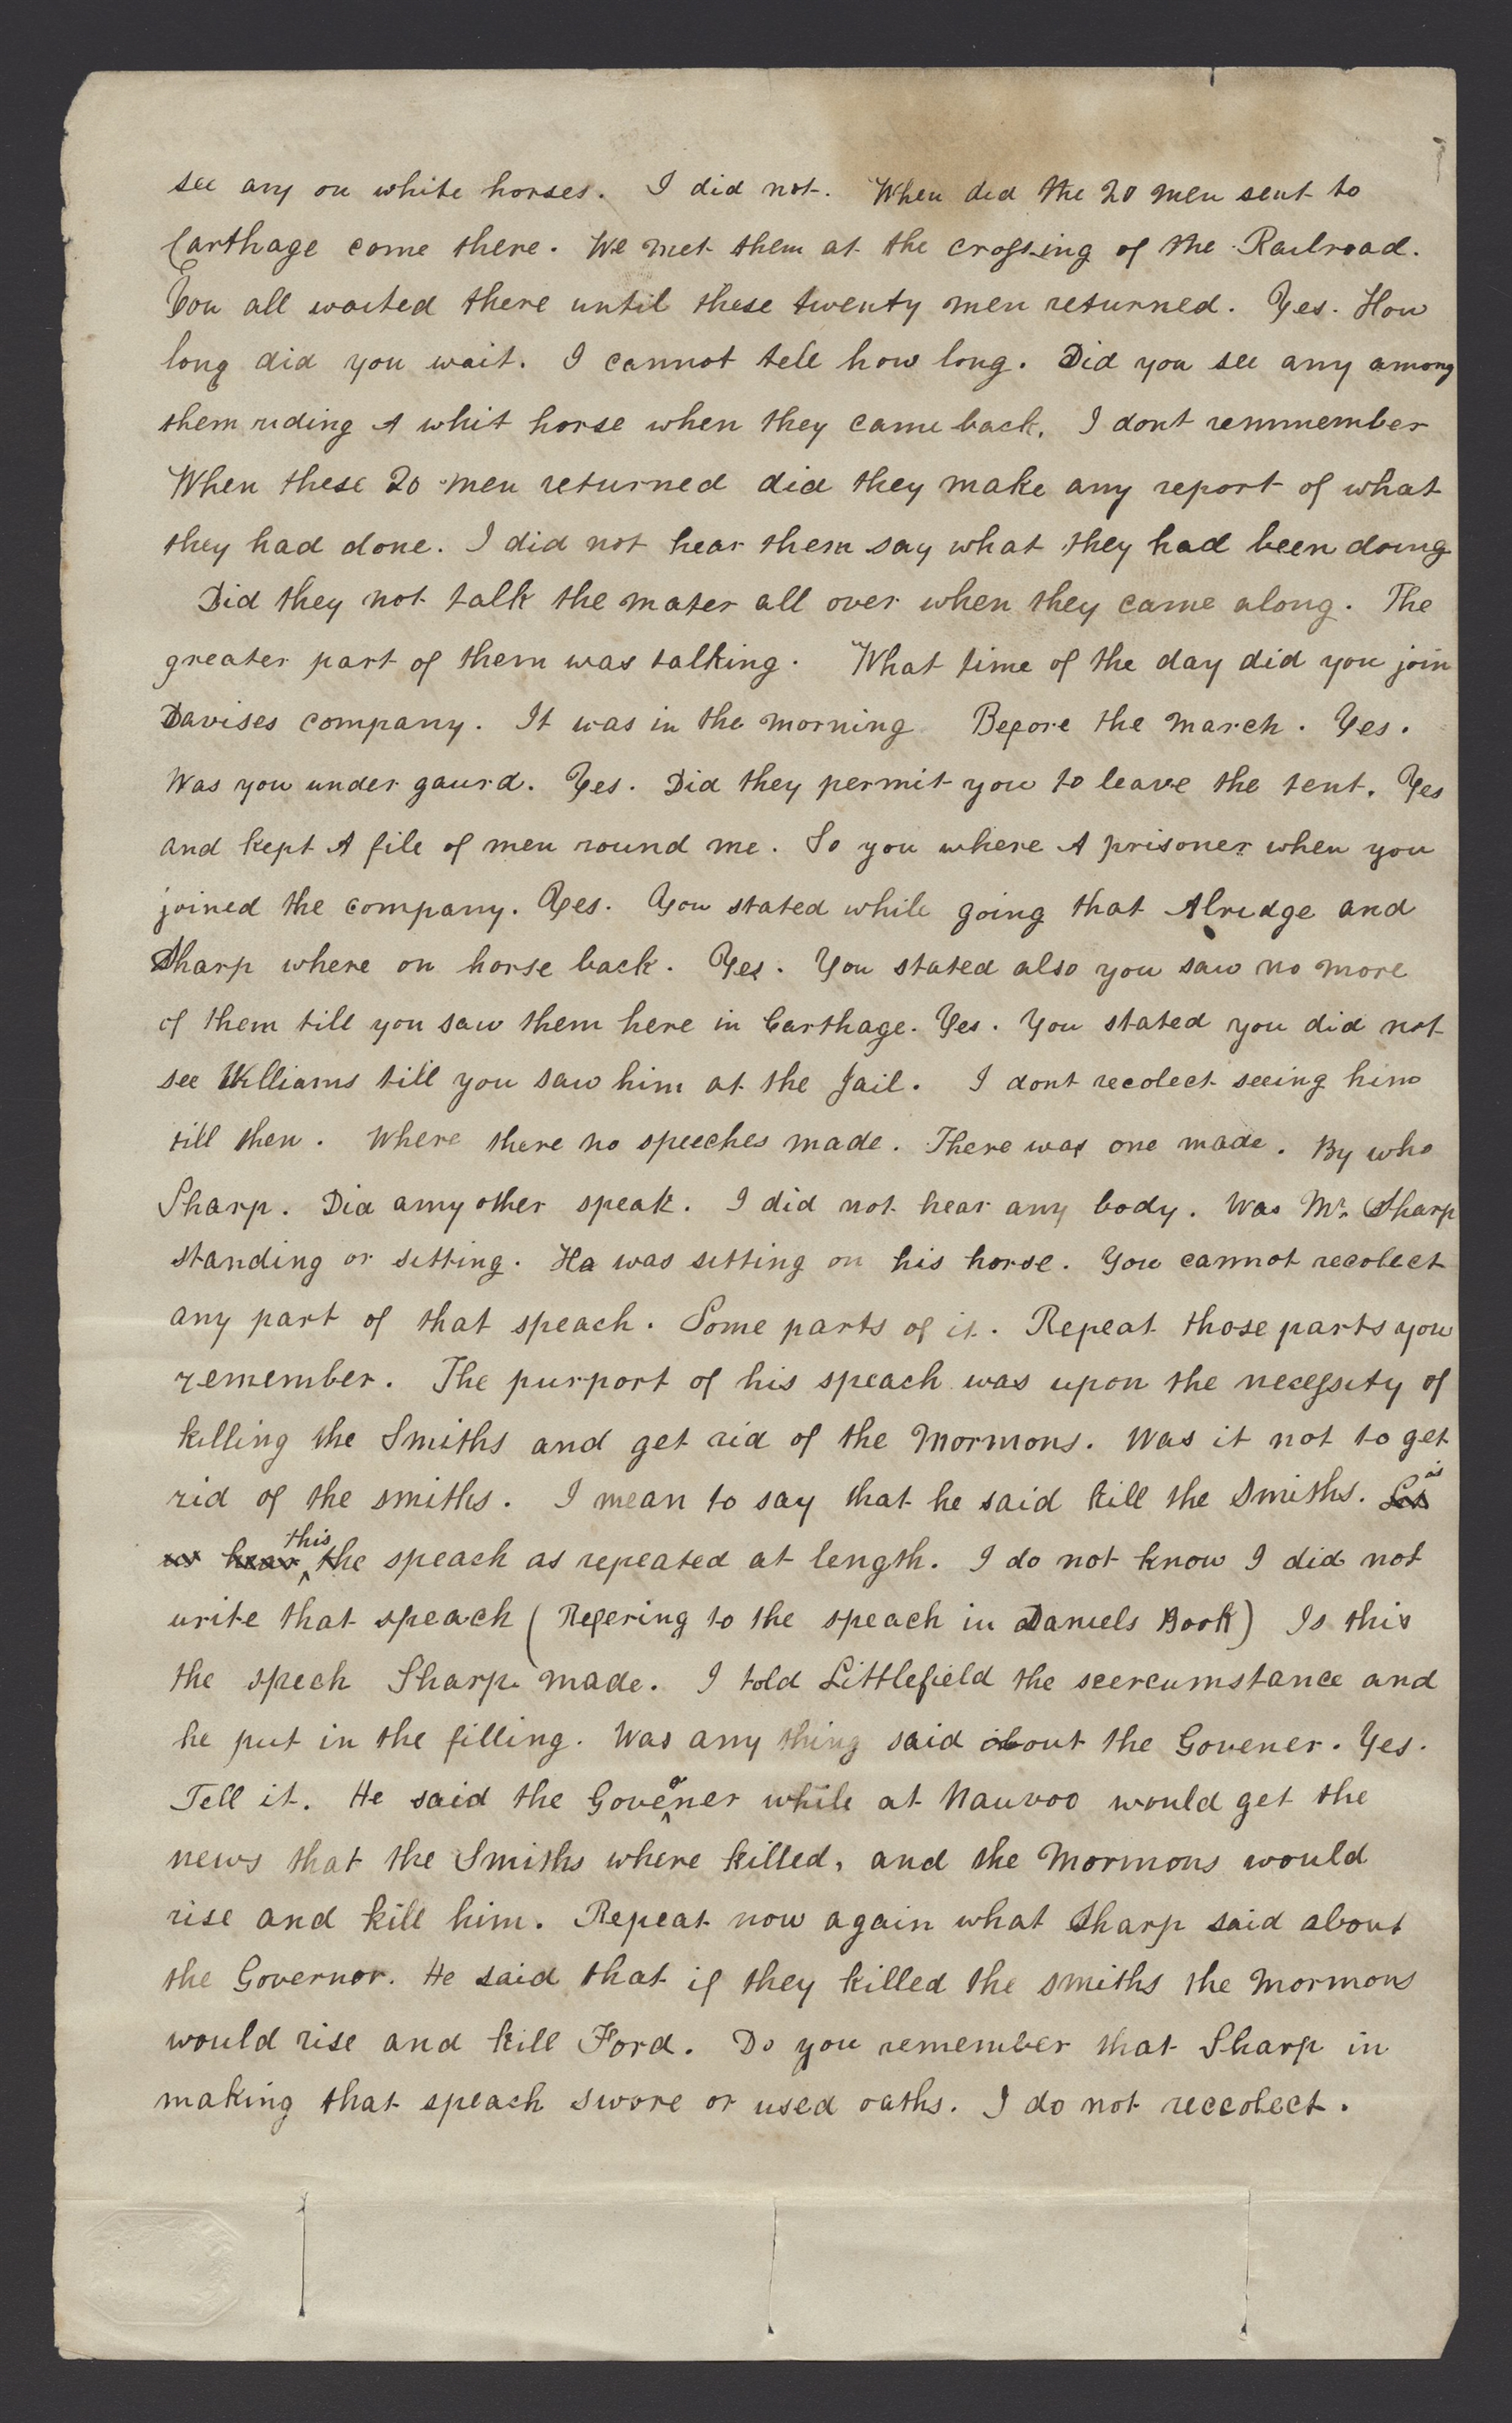 see any on white horses. I did not. When did the 20 men sent to
Carthage come there. We met them at the crossing of the Railroad.
You all waited there until these twenty men returned. Yes. How
long did you wait. I cannot tell how long. Did you see any among
them riding A whit horse when they came back. I dont remmember
When these 20 men returned did they make any report of what
they had done. I did not hear them say what they had been doing
Did they not talk the mater all over when they came along. The
greater part of them was talking. What time of the day did you join
Davises company. It was in the morning Before the march. Yes.
Was you under gaurd. Yes. Did they permit you to leave the tent. Yes
and kept A file of men round me. So you where A prisoner when you
joined the company. Yes. You stated while going that Alridge and
Sharp where on horse back. Yes. You stated also you saw no more
of them till you saw them here in Carthage. Yes. You stated you did not
see Williams till you saw him at the Jail. I dont recolect seeing him
till then. Where there no speeches made. There was one made. By who
Sharp. Did amy other speak. I did not hear any body. Was Mr. Sharp
standing or sitting. Ha was sitting on his horse. You cannot recolect
any part of that speach. Some parts of it. Repeat those parts you
remember. The purport of his speach was upon the necessity of
killing the Smiths and get rid of the Mormons. Was it not to get
rid of the smiths. I mean to say that he said kill the Smiths. Let is
us hear this the speach as repeated at length. I do not know I did not
write that speach (Refering to the speach in Daniels Book) Is this
the spech Sharp made. I told Littlefield the seercumstance and
he put in the filling. Was any thing said about the Govener. Yes.
Tell it. He said the Govener while at Nauvoo would get the
news that the Smiths where killed, and the Mormons would
rise and kill him. Repeat now again what Sharp said about
the Governor. He said that if they killed the smiths the Mormons
would rise and kill Ford. Do you remember that Sharp in
making that speach swore or used oaths. I do not reccolect.